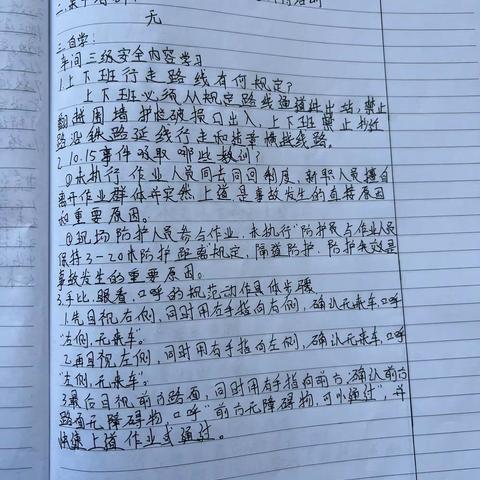 无
三.自学:
车间三级安全内容学习
1.上下班行走路线有何规定?
上下班必须从规定路线通道进出站,禁止
翻越围墙护栏破损口出入,上下班禁止抄近
路沿铁路延线行走和违章横越线路。
2.10.15事件吸取哪些教训?
①未执行作业人员同去同回制度,新职人员擅自
离开作业群体并突然上道,是事故发生的直接原因
和重要原因。
②现场防护人员参与作业,未执行"防护员与作业人员
保持3-20米防护距离规定,隔道防护,防护失效是
事故发生的重要原因。
3.手比、眼看、口呼的规范动作具体步骤
1.先目视右侧,同时用右手指向右侧,确认无来车,口呼
"右侧,无来车"。
2.再目视左侧,同时用右手指向左侧,确认无来车,口呼
"左侧,无来车"。
3.最后目视前方路面,同时用右手指向前方,确认前方
路面无障碍物,口呼"前方无障碍物,可以通过",并
快速上道作业或通过。